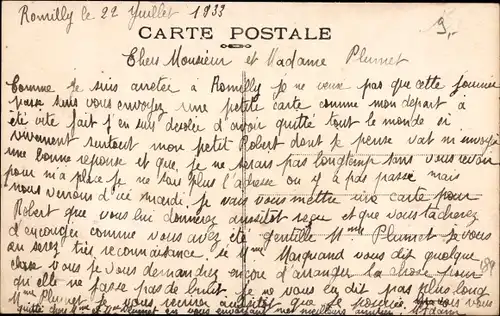 Romilly le 22 Juillet 1933
9,-
CARTE POSTALE
Chers Monsieur et Madame Plumet
Comme je suis arreter à Romilly je ne veux pas que cette journer
passe sans vous envoyez une petite carte comme mon départ à
été vite fait j'en suis desolee d'avoir quitté tout le monde si
vivement surtout mon petit Robert dont je pense vat m'envoyer
une bonne reponse et que je ne serais pas longtemp sans vous ecrire
pour m'a place je ne sais plus l'adresse ou y a pas passé mais
nous verrons d'ici mardi. Je vais vous mettre une carte pour
Robert que vous lui donnerez aussitot reçu et que vous tacherez
d'encourager comme vous avez été gentille Mme Plumet je vous
en serez très reconnaisance. si Mme Marquand vous dit quelque
chose vous je vous demandrez encore d'arranger la chose pour
qu'elle ne fasse pas de bruit. Je ne vous en dit pas plus long
Mme Plumet je vous recrirer aussitot que je pourrai
quitte dont Mr et Mme Plumet en vous envoyant mes meilleurs amitiés. Madame
189